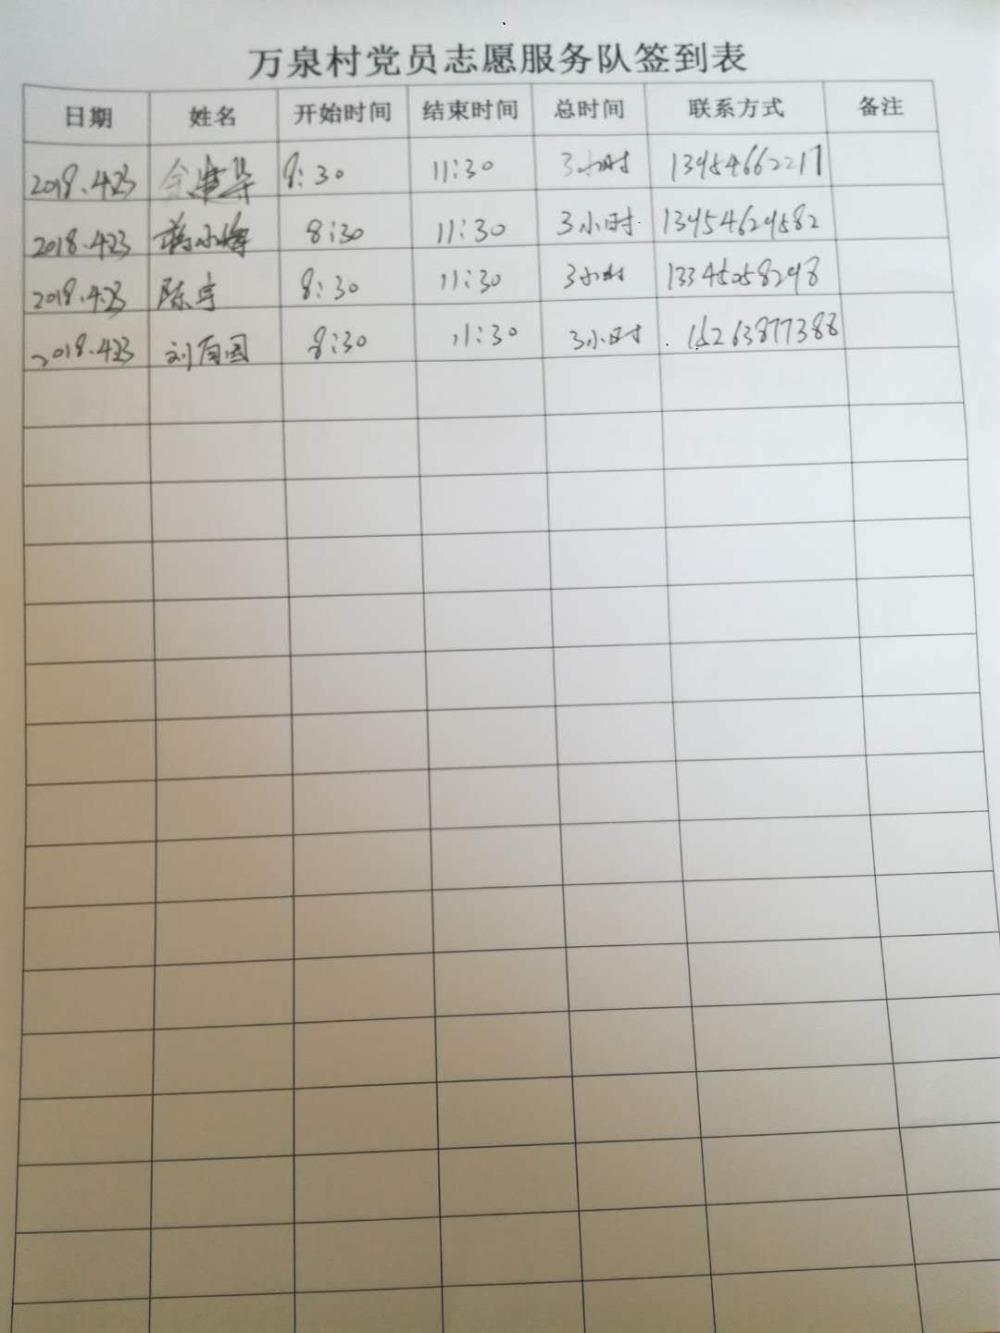 万泉村党员志愿服务队签到表
日期 姓名 开始时间 结束时间 总时间 联系方式 备注
2018.4.23 8:30 11:30 3小时 13954662217
2018.4.23 8:30 11:30 3小时 13954629582
2018.4.23 陈宇 8:30 11:30 3小时 13345058298
2018.4.23 刘有国 8:30 11:30 3小时 15263877388